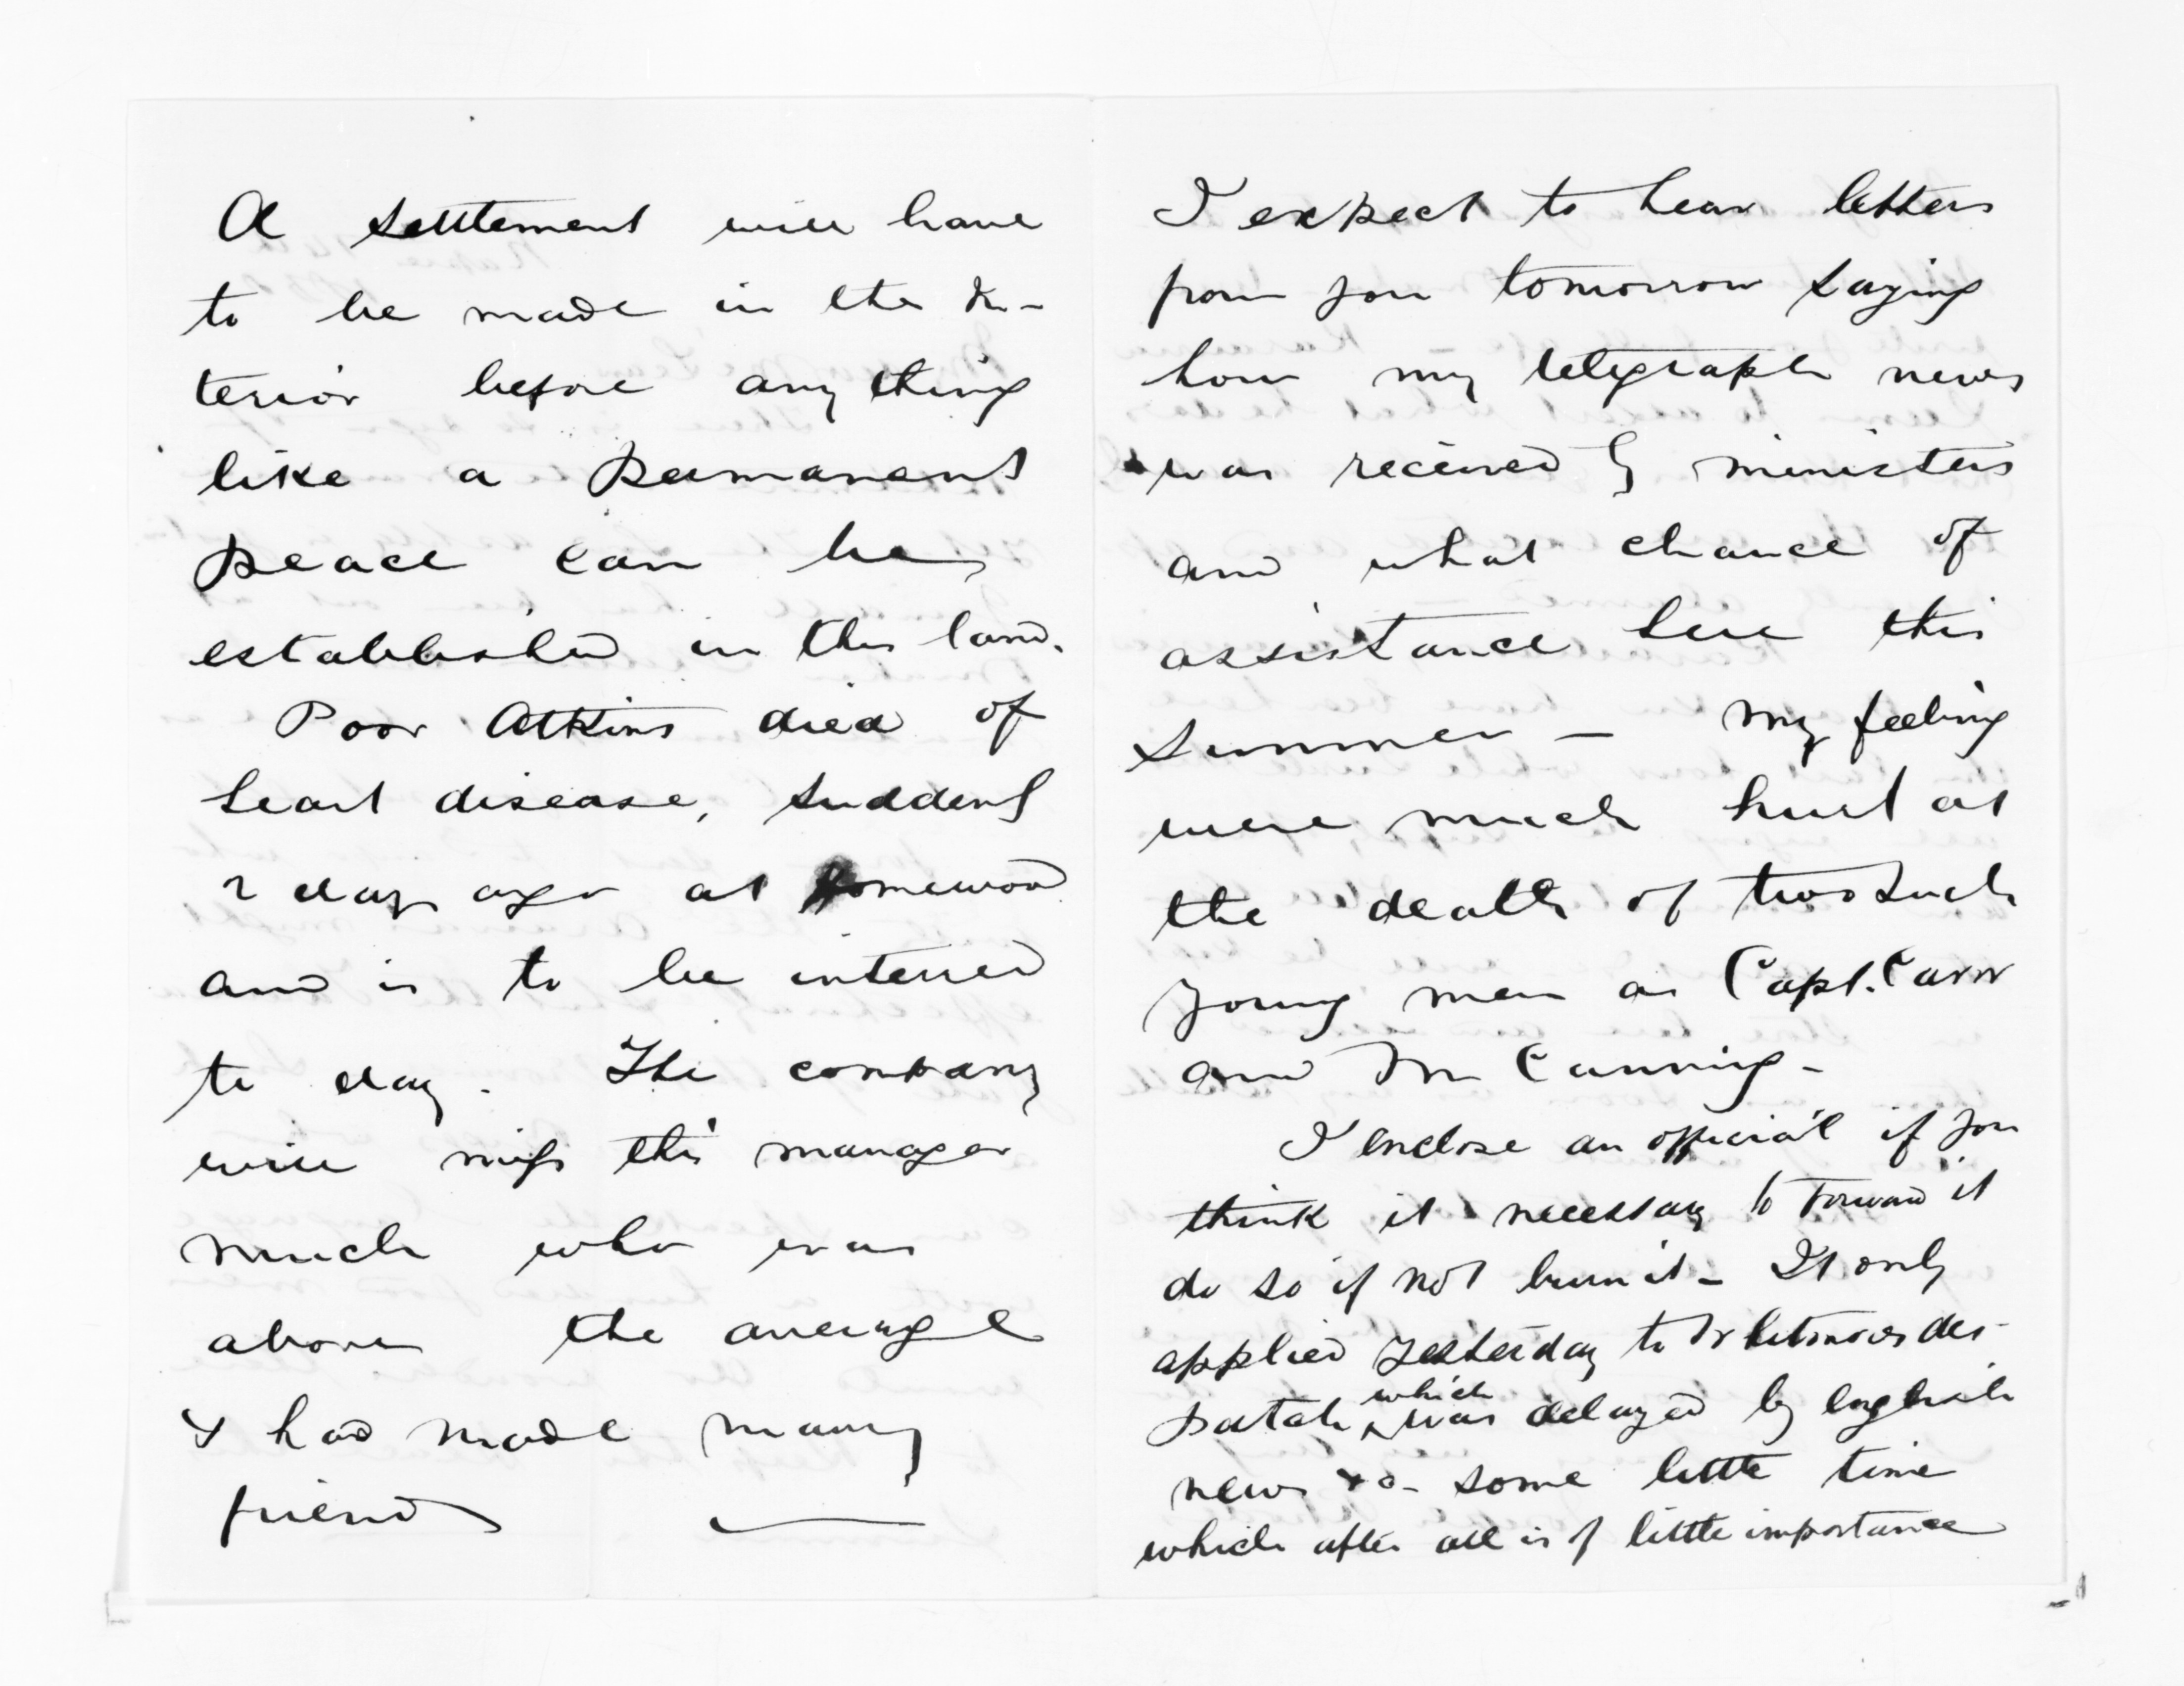 A settlement will have
to be made in the In-
terior before any thing
like a permanent
peace can be
established in this land.
Poor Atkins died of
heart disease, suddenly
2 days ago at Homewood
and is to be interred
to day. The company
will miss this manager
much who was
above the average
& had made many
friends
I expect to hear letters
from you tomorrow saying
how my telegraph news
was received by ministers
and what chance of
assistance here this
summer — My feeling
were much hurt at
the death of two such
young men as Capt. Carr
and Mr Canning -
I enclose an official if you
think it necessary to forward it
do so if not burn it - It only
applied yesterday to Whitmores des-
patch which was delayed by English
news &a - some little time
which after all is of little importance